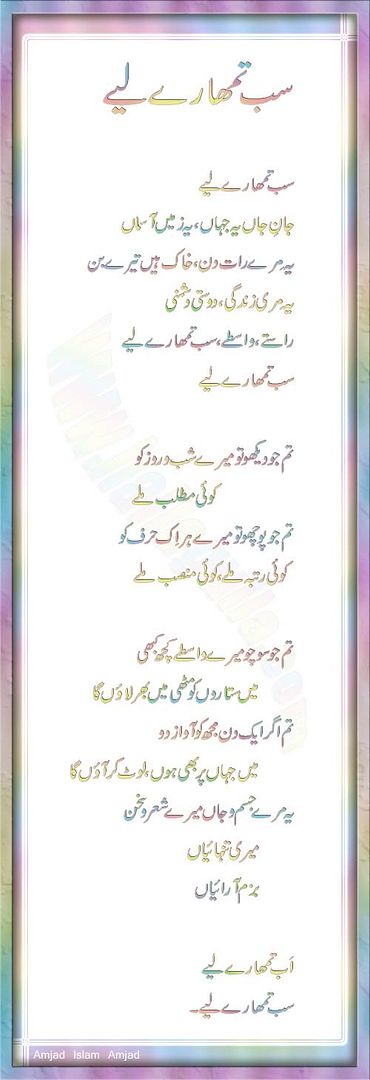 سب تمھارے لیے
سب تمھارے لیے
جانِ جاں یہ جہاں، یہ زمیں آسماں
یہ مرے رات دن، خاک ہیں تیرے بن
یہ مری زندگی، دوستی دشمنی
راستے، واسطے، سب تمھارے لیے
سب تمھارے لیے
تم جو دیکھو تو میرے شب و روز کو
کوئی مطلب ملے
تم جو پوچھو تو میرے ہر اِک حرف کو
کوئی رتبہ ملے، کوئی منصب ملے
تم جو سوچو میرے واسطے کچھ کبھی
میں ستاروں کو مٹھی میں بھر لاؤں گا
تم اگر ایک دن مجھ کو آواز دو
میں جہاں پر بھی ہوں، لوٹ کر آؤں گا
یہ مرے جسم و جاں میرے شعر و سخن
میری تنہائیاں
بزم آرائیاں
اَب تمھارے لیے
سب تمھارے لیے۔
Amjad Islam Amjad